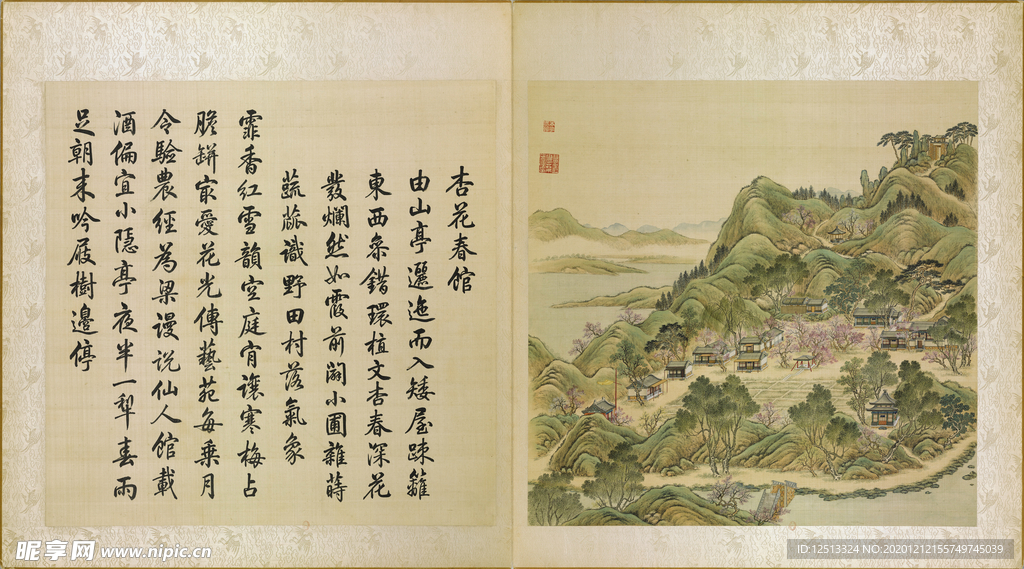 杏花春館
由山亭邐迤而入矮屋疎籬
東西參錯環植文杏春深花
發爛然如霞前闢小圃雜蒔
蔬蓏識野田村落氣象
霏香紅雪韻空庭肯讓寒梅占
膽缾寂愛花光傳藝苑每乗月
令驗農經為梁謾説仙人館載
酒偏宜小隱亭夜半一犂春雨
足朝来吟屐樹邊停
昵享网 www.nipic.cn
ID:12513324 NO:20201212155749745039